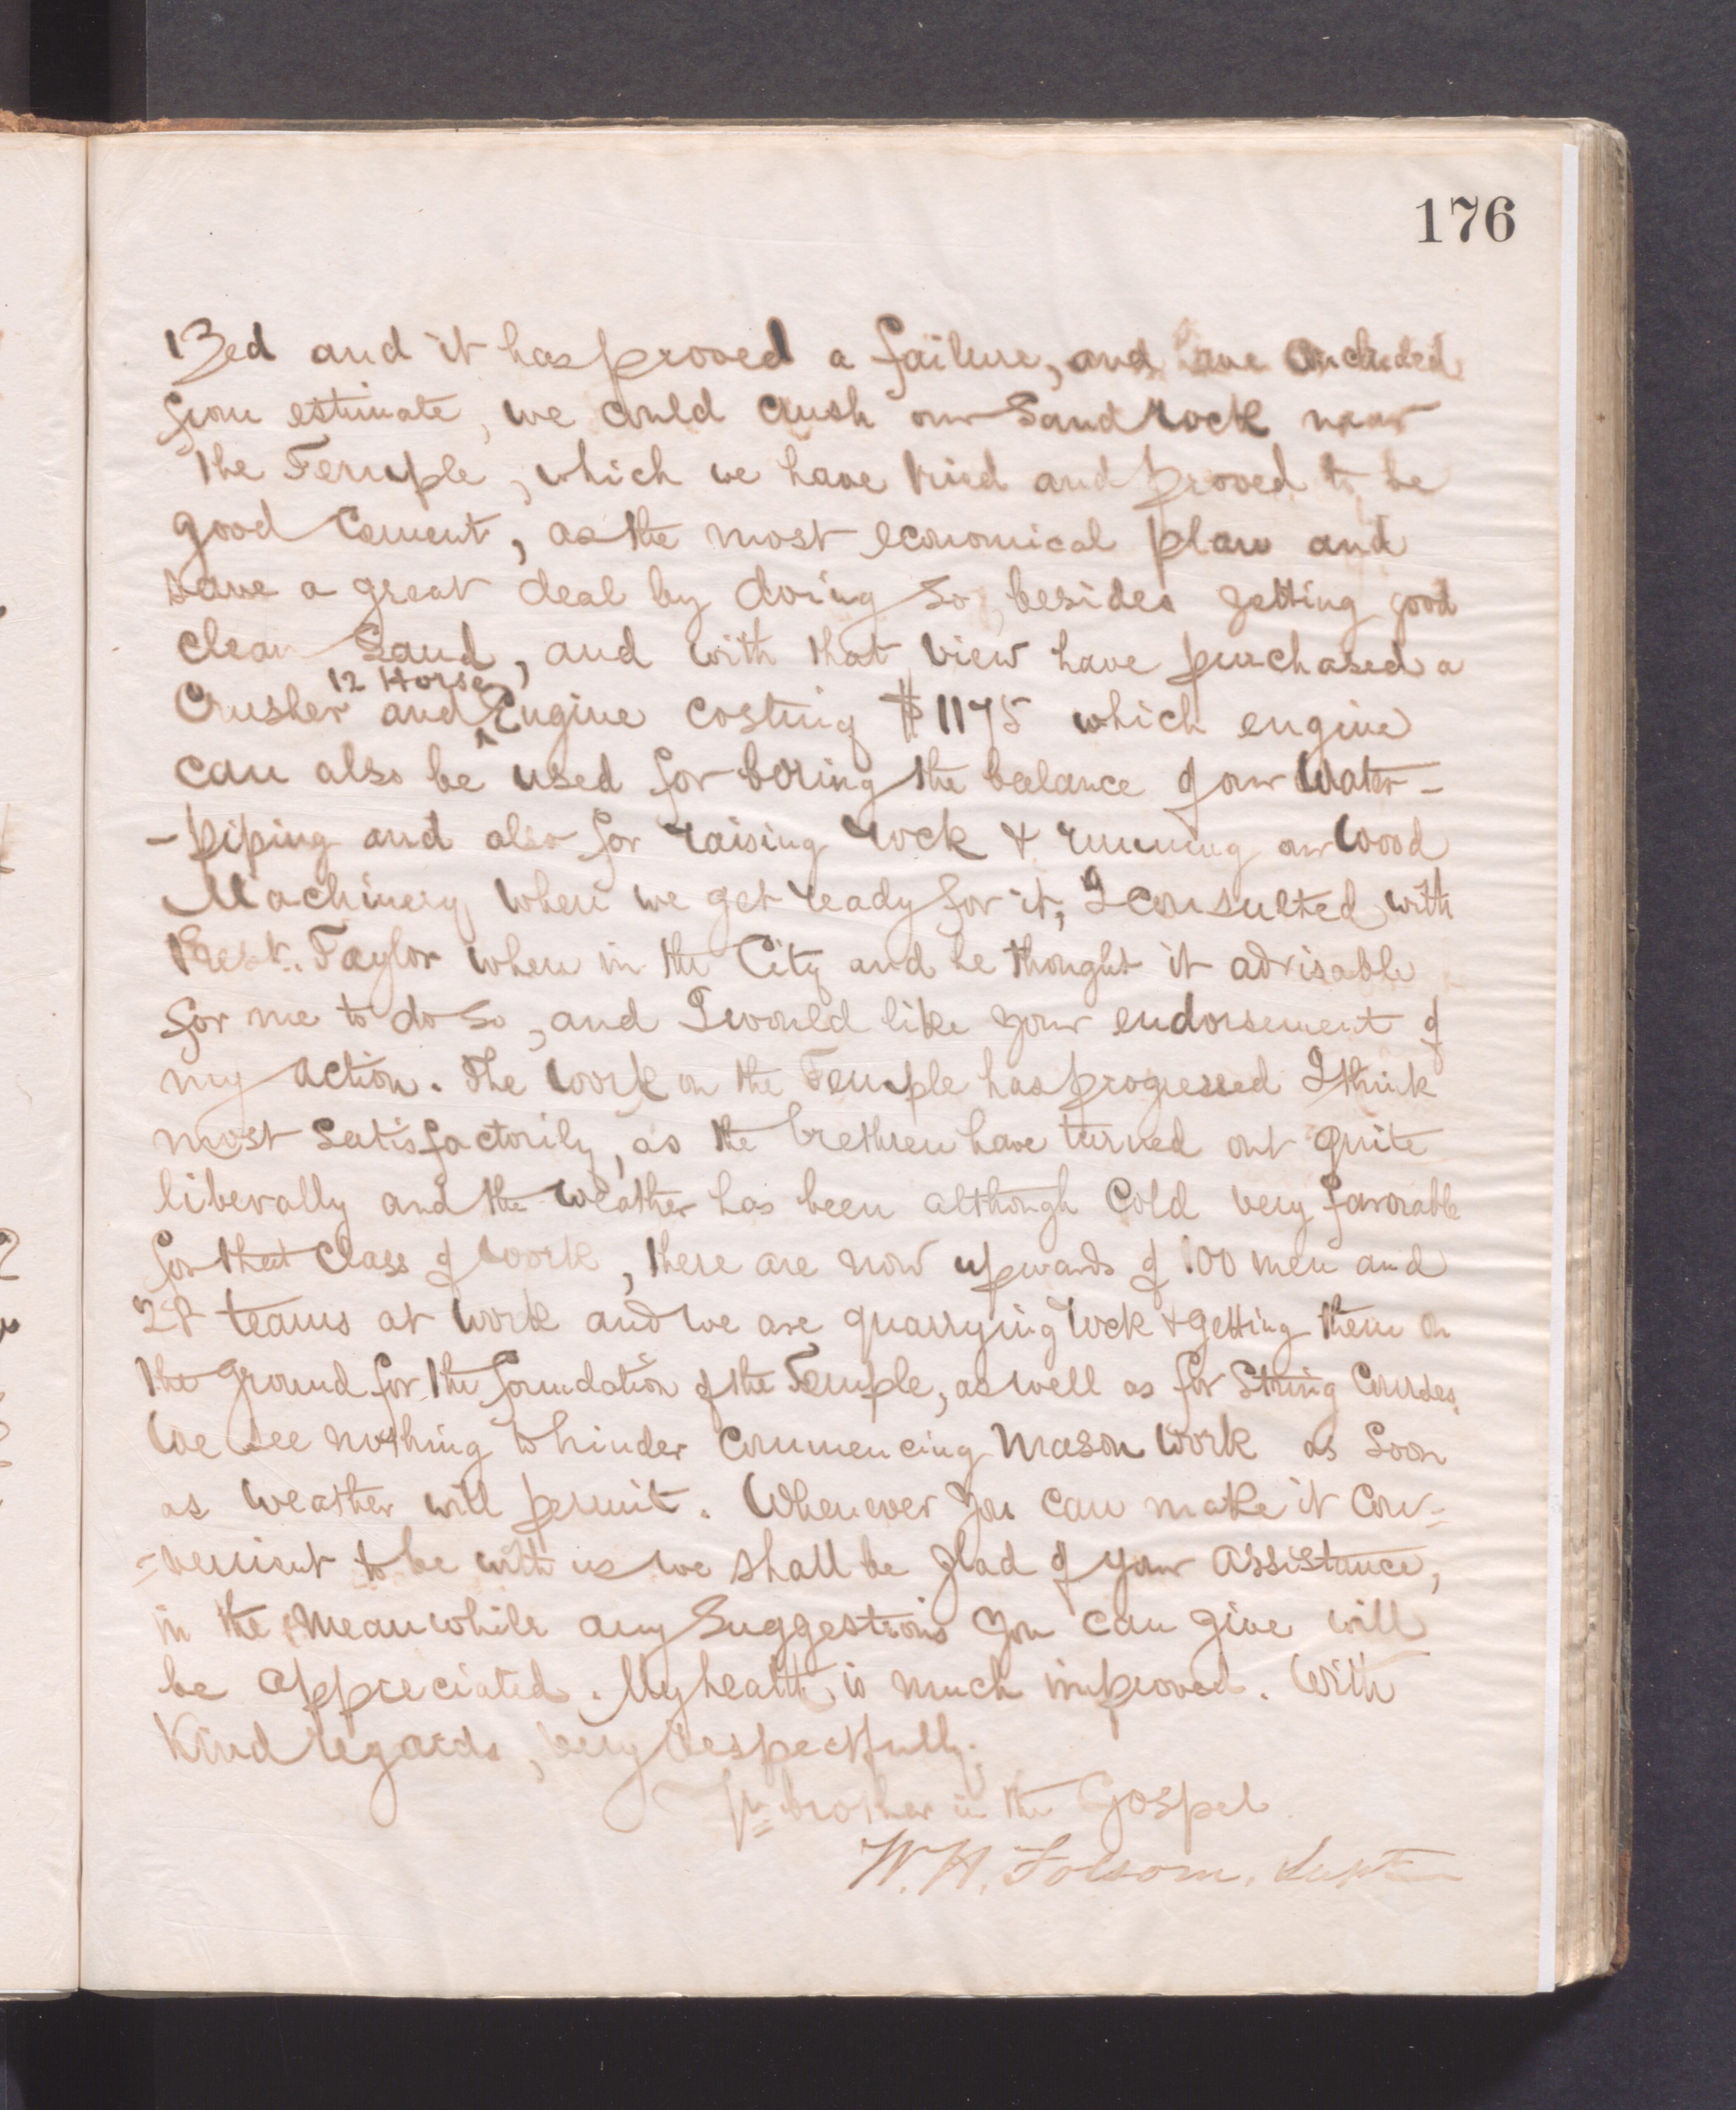 176
Bed and it has proved a failure, and have concluded
from estimate, we could crush our Sand rock near
the Temple, which we have tried and proved to be
good Cement, as the most economical plan and
save a great deal by doing so, besides getting good
clean Sand, and with that view have purchased a
12 Horse
Crusher and ^ Engine costing $1175 which engine
can also be used for boring the balance of our Water-
-piping and also for raising rock & running our wood
Machinery when we get ready for it, I consulted with
Prest. Taylor when in the City and he thought it advisable
for me to do so, and I would like your endorsement of
my action. The work on the Temple has progressed I think
most satisfactorily, as the brethren have turned out quite
liberally and the weather has been although Cold very favorable
for that Class of work, there are now upwards of 100 men and
28 teams at work and we are quarrying rock & getting them on
the ground for the foundation of the Temple, as well as for String Courses.
We see nothing to hinder Commencing Mason work as soon
as weather will permit. Whenever you can make it con=
=venient to be with us we shall be glad of your assistance,
in the meanwhile any Suggestions you can give will
be appreciated. My health is much improved. With
Kind regards, very respectfully,
Yr brother in the Gospel
W. H. Folsom, Supt